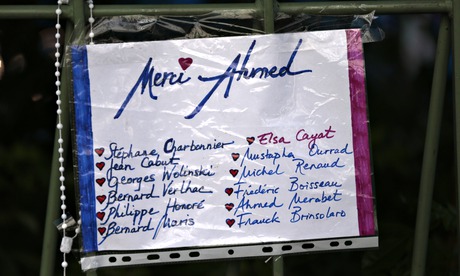 Merci Ahmed
Stéphane Charbonnier
Jean Cabut
Georges Wolinski
Bernard Verlhac
Philippe Honoré
Bernard Maris
Elsa Cayat
Mustapha Ourrad
Michel Renaud
Frédéric Boisseau
Ahmed Merabet
Franck Brinsolaro